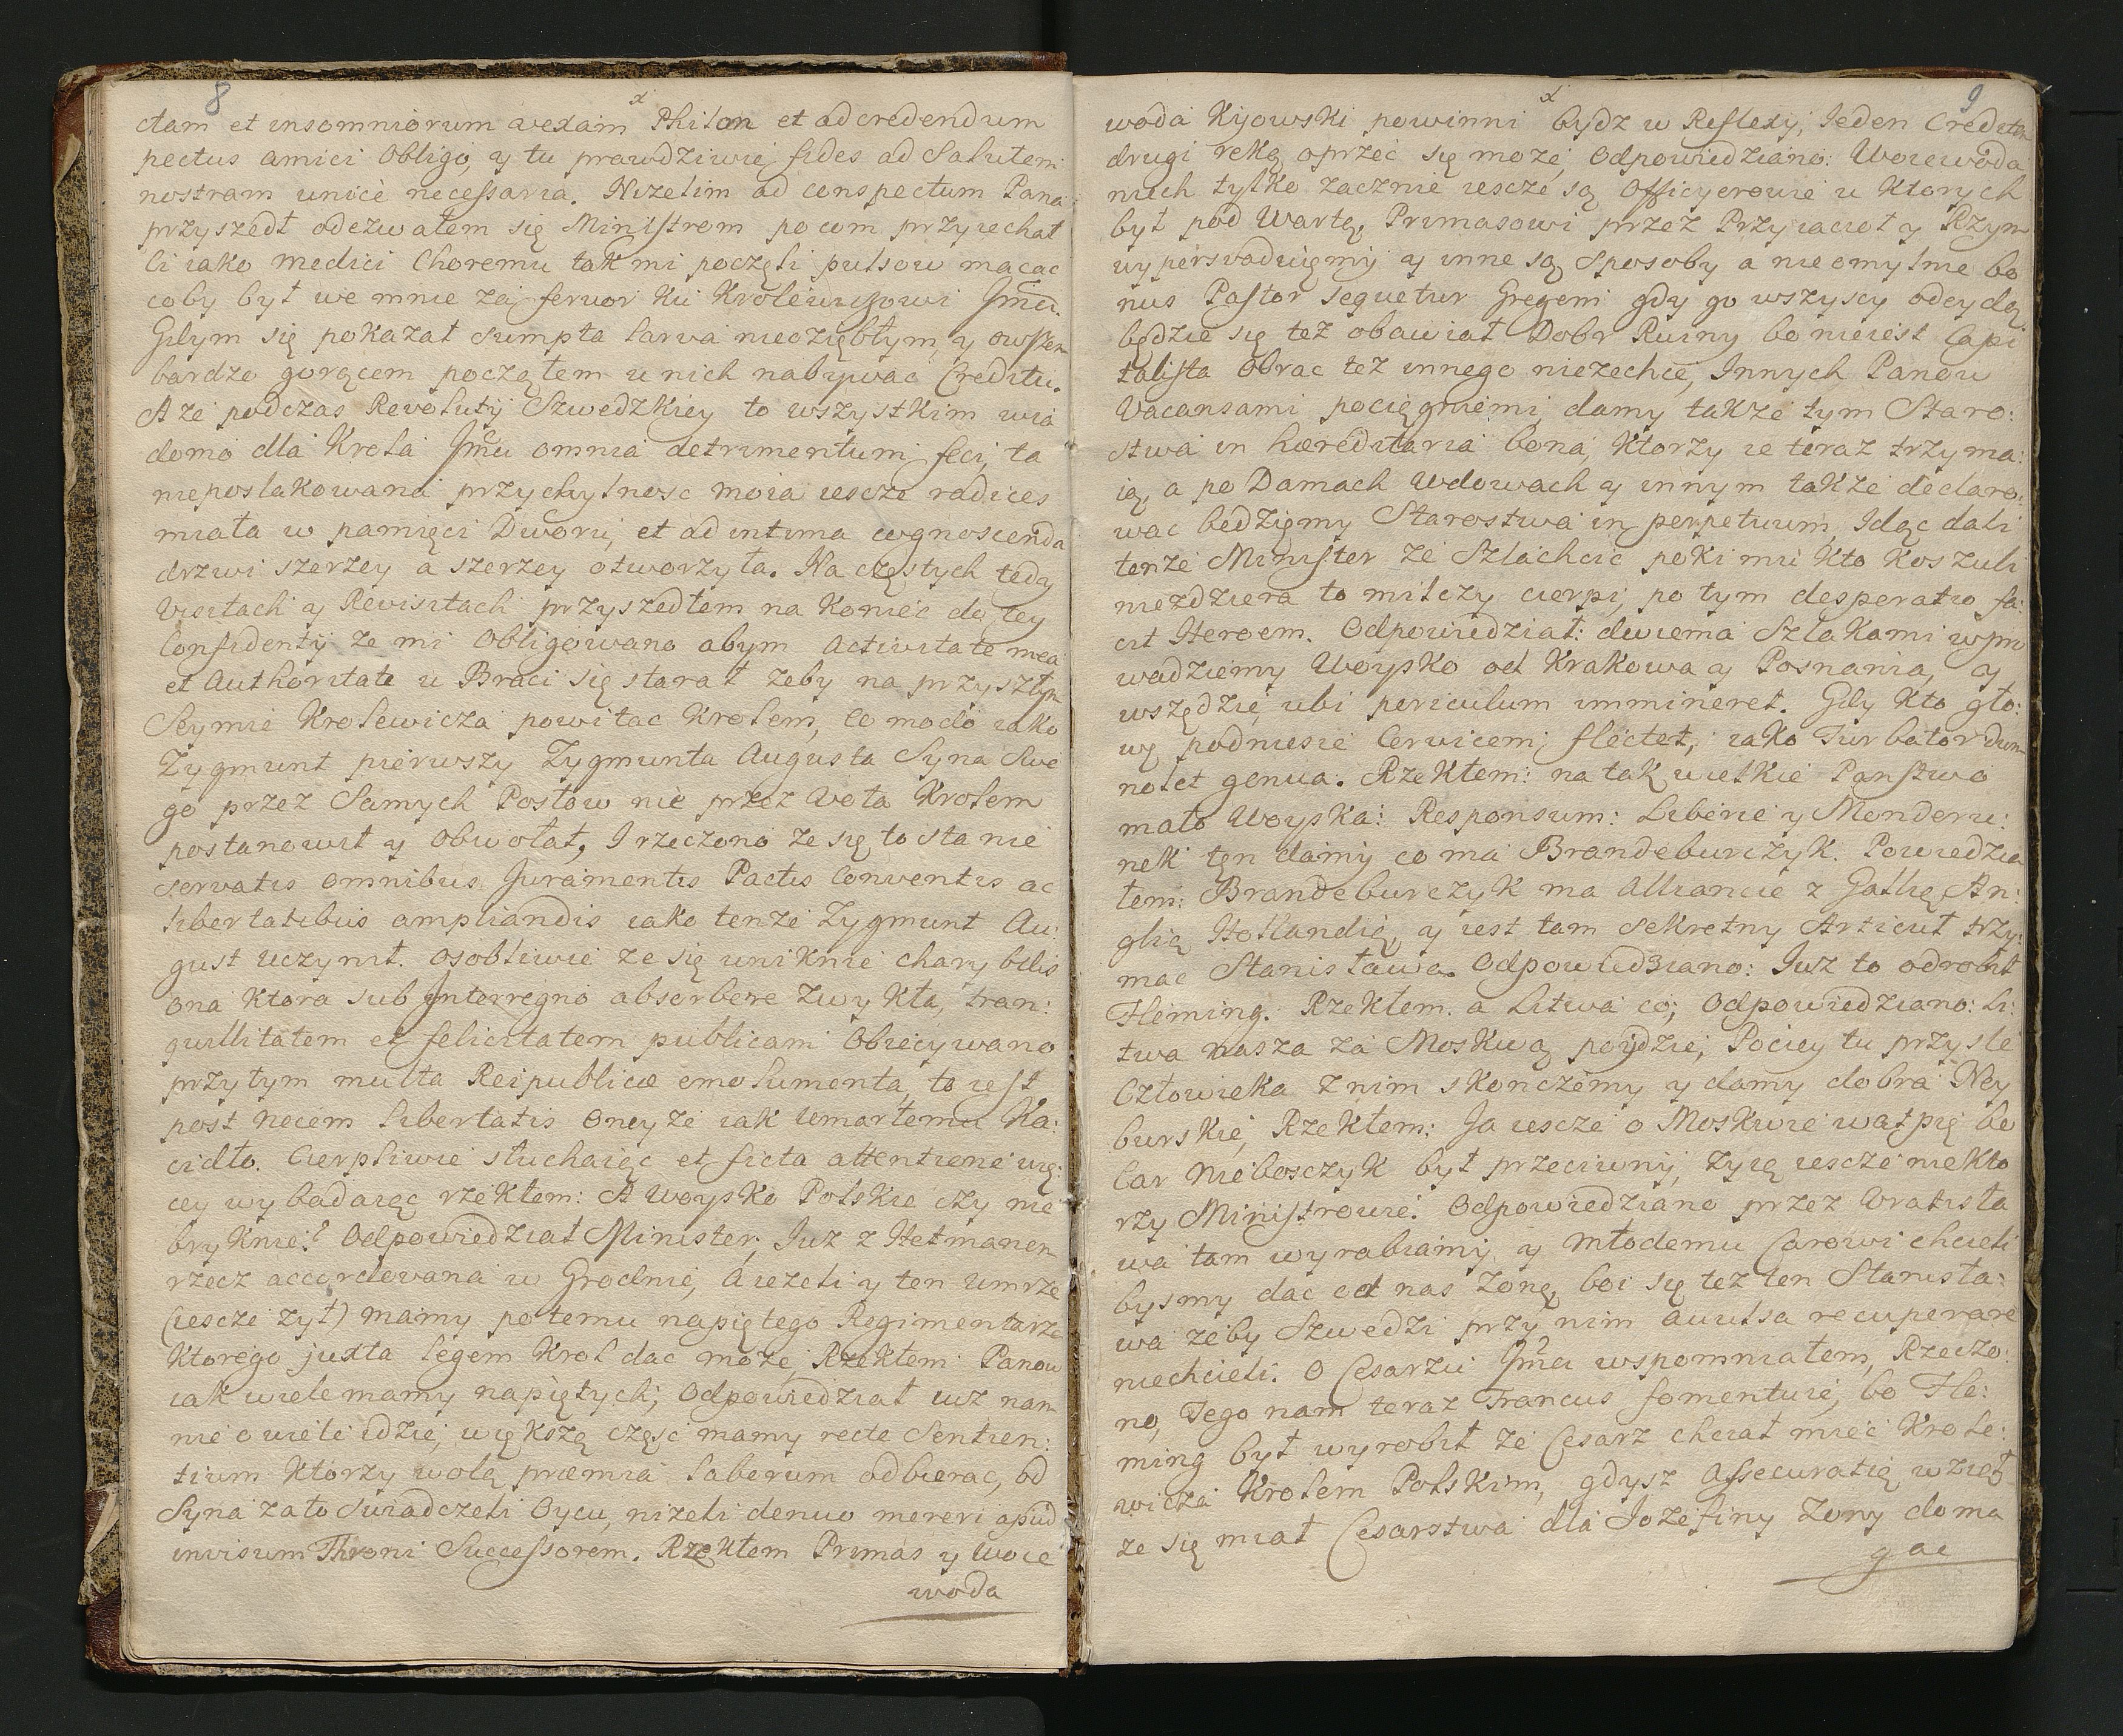 8
ctam et insomniorum avexam Philon et ad credendum
pectus amici Obligo, y tu prawdziwie fides ad Salutem
nostram unicè necessaria. Niżelim ad conspectum Pana
przyszedł odezwałem się Ministrom po com przyiechał
Ci iako medici Choremu tak mi poczęli pulsow macac
coby był we mnie za fervor ku Krolewiczowi Jmci.
Gdym się pokazał sumpta larva nieoziębłym, y owszem
bardzo gorącem począłem u nich nabywac Creditu.
A ze podczas Revoluty Szwedzkiey to wszystkim wia
domo dla Krola Jmci omnia detrimentum feci, ta
nieposlakowana przychylnosc moia iescze radices
miała w pamięci Dworu, et ad intima cognoscenda
drzwi szerzey a szerzey otworzyła. Na częstych tedy
Visitach y Revisitach przyszedłem na koniec do tey
Confidentÿ ze mi Obligowano abym Activitate mea
et Authoritate u Braci się starał zeby na przyszłym
Seymie Krolewicza powitac Krolem, eo modo iako
Zygmunt pierwszy Zygmunta Augusta Syna Swe
go przez Samych Posłow nie przez Vota Krolem
postanowił y Obwołał, I rzeczono ze się to stanie
servatis omnibus Juramentis Pactis Conventis ac
libertatibus ampliandis iako tenze Zygmunt Au:
gust uczynił. osobliwie ze się uniknie charybdis
ona ktora sub Interregno absorbere zwykła, tran:
quillitatem et felicitatem publicam Obiecywano
przytym multa Reipublicæ emolumenta, to iest
post necem libertatis oneyze iak umarłemu Ka:
cidło. Cierpliwie słuchaiąc et ficta attentione wię:
cey wybadaiąc rzekłem: A woysko Polskie czy nie
bryknie? Odpowiedział Minister, Juz z Hetmanem
rzecz accordovana w Grodnie, a iezeli y ten umrze
(iescze zył) mamy po temu napiętego Regimentarza
Ktorego juxta legem Krol dac moze, Rzekłem Panow
iak wiele mamy napiętych; Odpowiedział uz nam
nie o wiele idzie, większą częsc mamy recte Sentien:
tium Ktorzy wolą præmia laborum odbierac, od
Syna zato swiadczeli Oycu, nizeli denuo mereri apud
invisum Throni Successorem. Rzekłem Primas y Woie
woda
9
woda Kijowski powinni bydz w Reflexÿ, Jeden Creditem
drugi ręką oprzec się moze, Odpowiedziano: Woiewoda
niech tylko zacznie iescze są Officyerowie u Ktorych
był pod Wartą, Primasowi przez Przyiacioł y Rzym
wypersvaduiemy y inne są sposoby a nieomylnie bo
nus Pastor sequetur Gregem gdy go wszyscy odeydą
będzie się tez obawiał Dobr Ruiny bo nieiest Capi
talista Obrac tez innego niezechce, Innych Panow
Vacansami pociągniemi, damy takze tym Staro:
stwa in hæreditaria bona, Ktorzy ie teraz trzyma:
ią, a po Damach Wdowach y innym takze declaro:
wac bedziemy Starostwa in perpetuum, Idąc dali
tenze Minister ze Szlachcic poki mu kto koszuli
niezdziera to milczy cierpi, po tym desperatio fa:
cit Heroem. Odpowiedział: dwiema Szlakami wpro
wadziemy Woysko od Krakowa y Posnania, y
wszędzie ubi periculum immineret. Gdy kto gło:
wę podniesie Cervicem flectet, iako Turbator dum
nolet genua. Rzekłem: na tak wielkie Panstwo
mało Woyska: Responsum: Liberie y Monderu:
nek ten damy co ma Brandeburczyk. Powiedzia
łem: Brandeburczyk ma Alliancie z Gallią An:
glią Hollandią, y iest tam sekretny Articuł trzy:
mac Stanisława. Odpowiedziano: Juz to odrobił
Fleming. Rzekłem. a Litwa co; Odpowiedziano: Li:
twa nasza za Moskwą poydzie, Pociey tu przysle
Człowieka z nim skonczemy y damy dobra Ney
burskie, Rzekłem: Ja iescze o Moskwie wątpię bo
Car Nieboszczyk był przeciwny, zyią iescze niekto
rzy Ministrowie: Odpowiedziano przez Wratisła
wa tam wyrabiamy, y młodemu Carowi chcieli
bysmy dac od nas Zonę, boi się tez ten Stanisła:
wa zeby Szwedzi przy nim avulsa recuperare
niechcieli. O Cesarzu Jmci wspomniałem, Rzeczo:
no, Tego nam teraz Francus fomentuie, bo Fle:
ming był wyrobił ze Cesarz chciał miec Krole:
wicza Krolem Polskim, gdysz Assecuratią wziął
ze się miał Cesarstwa dla Jozefiny Zony doma
gac